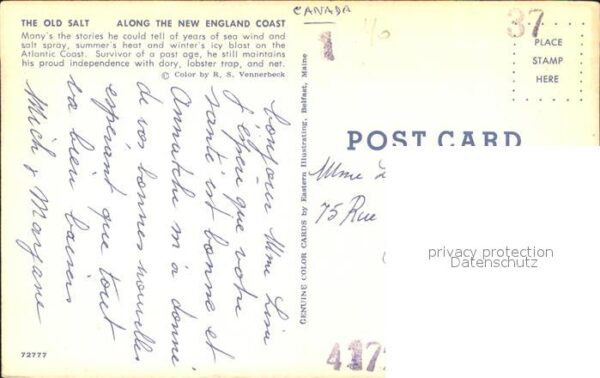 THE OLD SALT ALONG THE NEW ENGLAND COAST
Many's the stories he could tell of years of sea wind and
salt spray, summer's heat and winter's icy blast on the
Atlantic Coast. Survivor of a past age, he still maintains
his proud independence with dory, lobster trap, and net.
© Color by R. S. Vennerbeck
bonjour Mme Lisa
j'espère que votre
santé est bonne et
Annutche m'a donné
de vos bonnes nouvelles
espérant que tout
va bien baisers
Mich & Maryane
72777
GENUINE COLOR CARDS by Eastern Illustrating, Belfast, Maine
CANADA
1
37
PLACE
STAMP
HERE
POST CARD
Mme
75 Rue
privacy protection
Datenschutz
4172